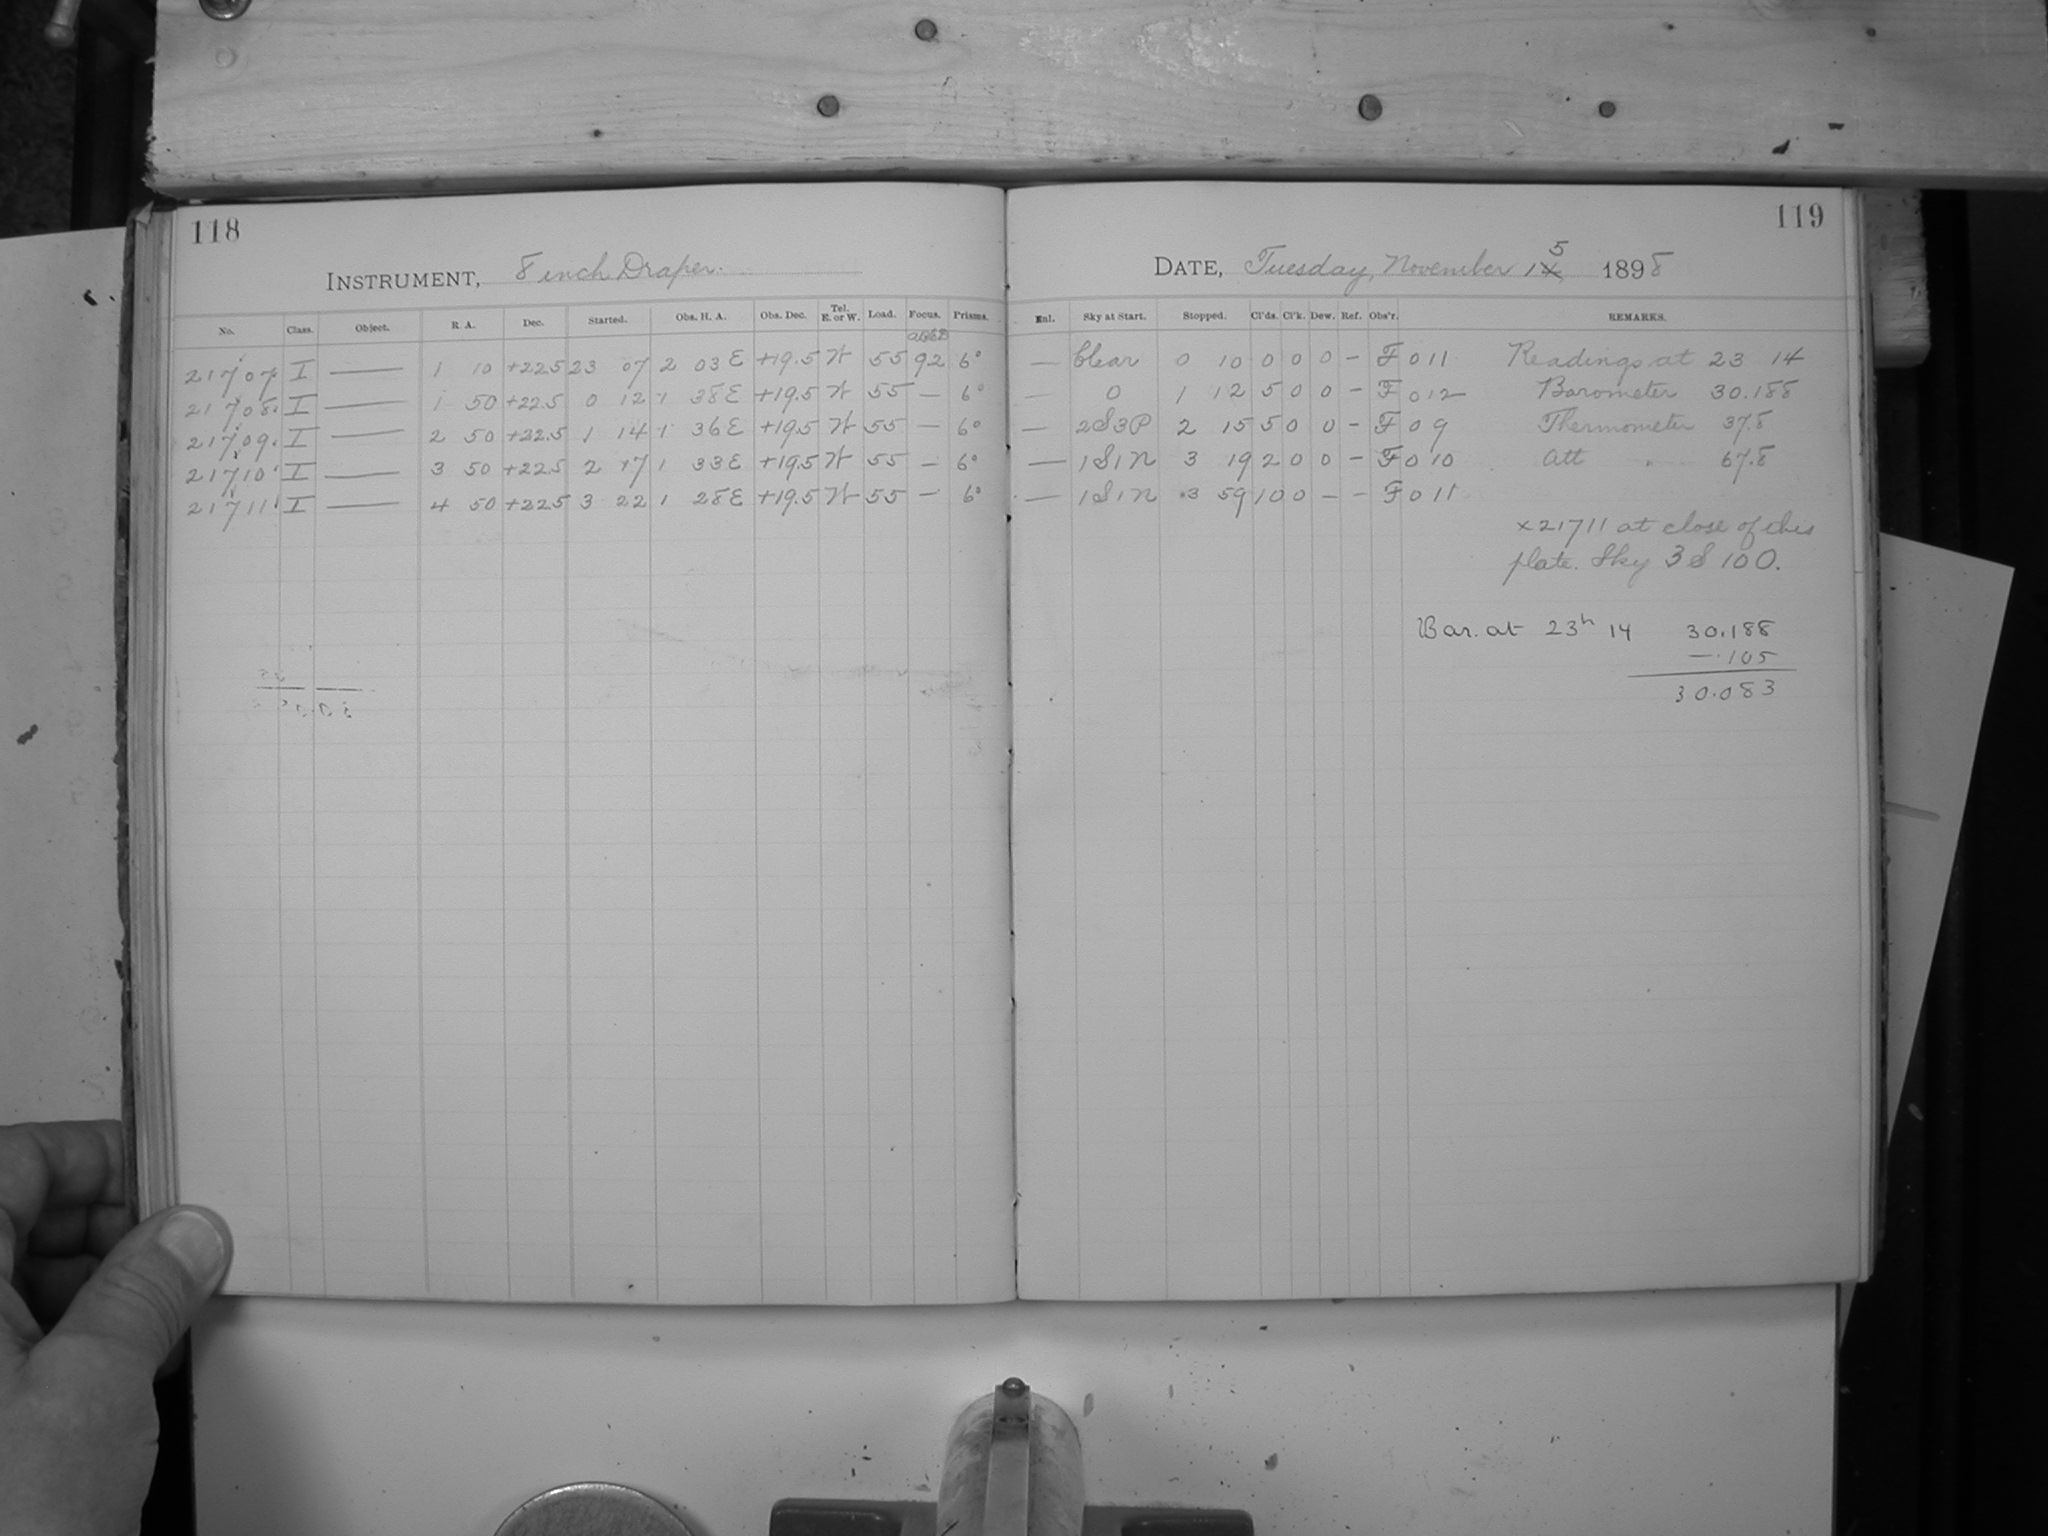 118
INSTRUMENT, 8 inch Draper.
No. Class. Object. R. A. Dec. Started. Obs. H. A. Obs. Dec. Tel. E. or W. Load. Focus. Prisms.
21707 I — 1 10 +22.5 23 07 2 03 E +19.5 W 55 92 6°
21708 I — 1 50 +22.5 0 12 1 38 E +19.5 W 55 — 6°
21709 I — 2 50 +22.5 1 14 1 36 E +19.5 W 55 — 6°
21710 I — 3 50 +22.5 2 17 1 33 E +19.5 W 55 — 6°
21711 I — 4 50 +22.5 3 22 1 28 E +19.5 W 55 — 6°
119
DATE, Tuesday, November 15 1898
Enl. Sky at Start. Stopped. Cl'ds. Cl'k. Dew. Ref. Obs'r. REMARKS.
— Clear 0 10 0 0 0 – F 0 11 Readings at 23 14
— 0 1 12 5 0 0 – F 0 12 Barometer 30.188
— 2S3P 2 15 5 0 0 – F 0 9 Thermometer 37.8
— 1S1N 3 19 2 0 0 – F 0 10 Att " 67.8
— 1S1N 3 59 10 0 – – F 0 11
x21711 at close of this
plate. Sky 3 S 10 0.
Bar. at 23h 14 30.188
—.105
30.083